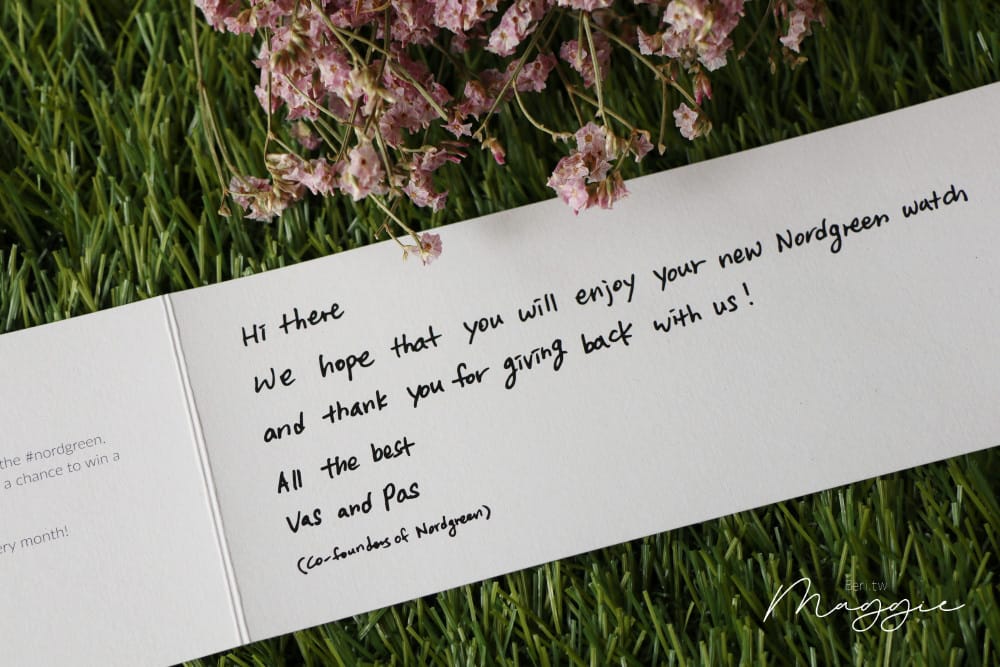 the #nordgreen.
a chance to win a
ery month!
Hi there
We hope that you will enjoy your new Nordgreen watch
and thank you for giving back with us!
All the best
Vas and Pas
(Co-founders of Nordgreen)
Beri.tw
Maggie